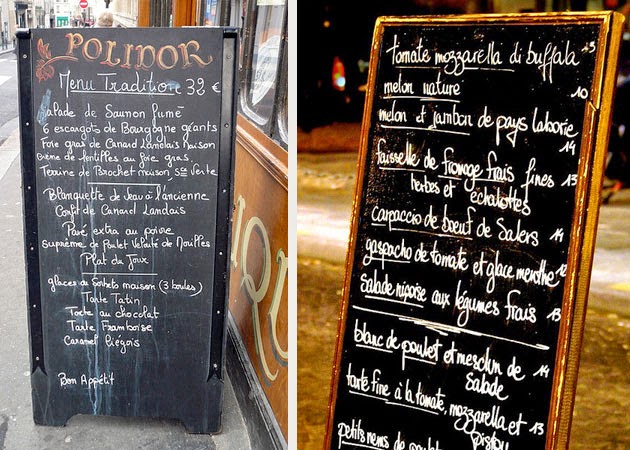 POLIDOR
Menu Tradition 32 €
Salade de Saumon fumé
6 escargots de Bourgogne géants
Foie gras de Canard Landais Maison
Crème de lentilles au foie gras
Terrine de Brochet maison, sce Verte
Blanquette de Veau à l'ancienne
Confit de Canard Landais
Pavé extra au poivre
Suprême de Poulet Velouté de Morilles
Plat du Jour
glaces ou Sorbets maison (3 boules)
Tarte Tatin
Tarte au chocolat
Tarte Framboise
Caramel liégois
Bon Appétit
tomate mozzarella di buffala
melon nature 10
melon et jambon de pays laborie
14
faisselle de fromage frais fines 13
herbes et échalottes
carpaccio de bœuf de Salers 14
gaspacho de tomate et glace menthe 12
Salade niçoise aux légumes frais 13
blanc de poulet et mesclun de 14
Salade
tarte fine à la tomate, mozzarella et 13
pistou
petits nems de poulet